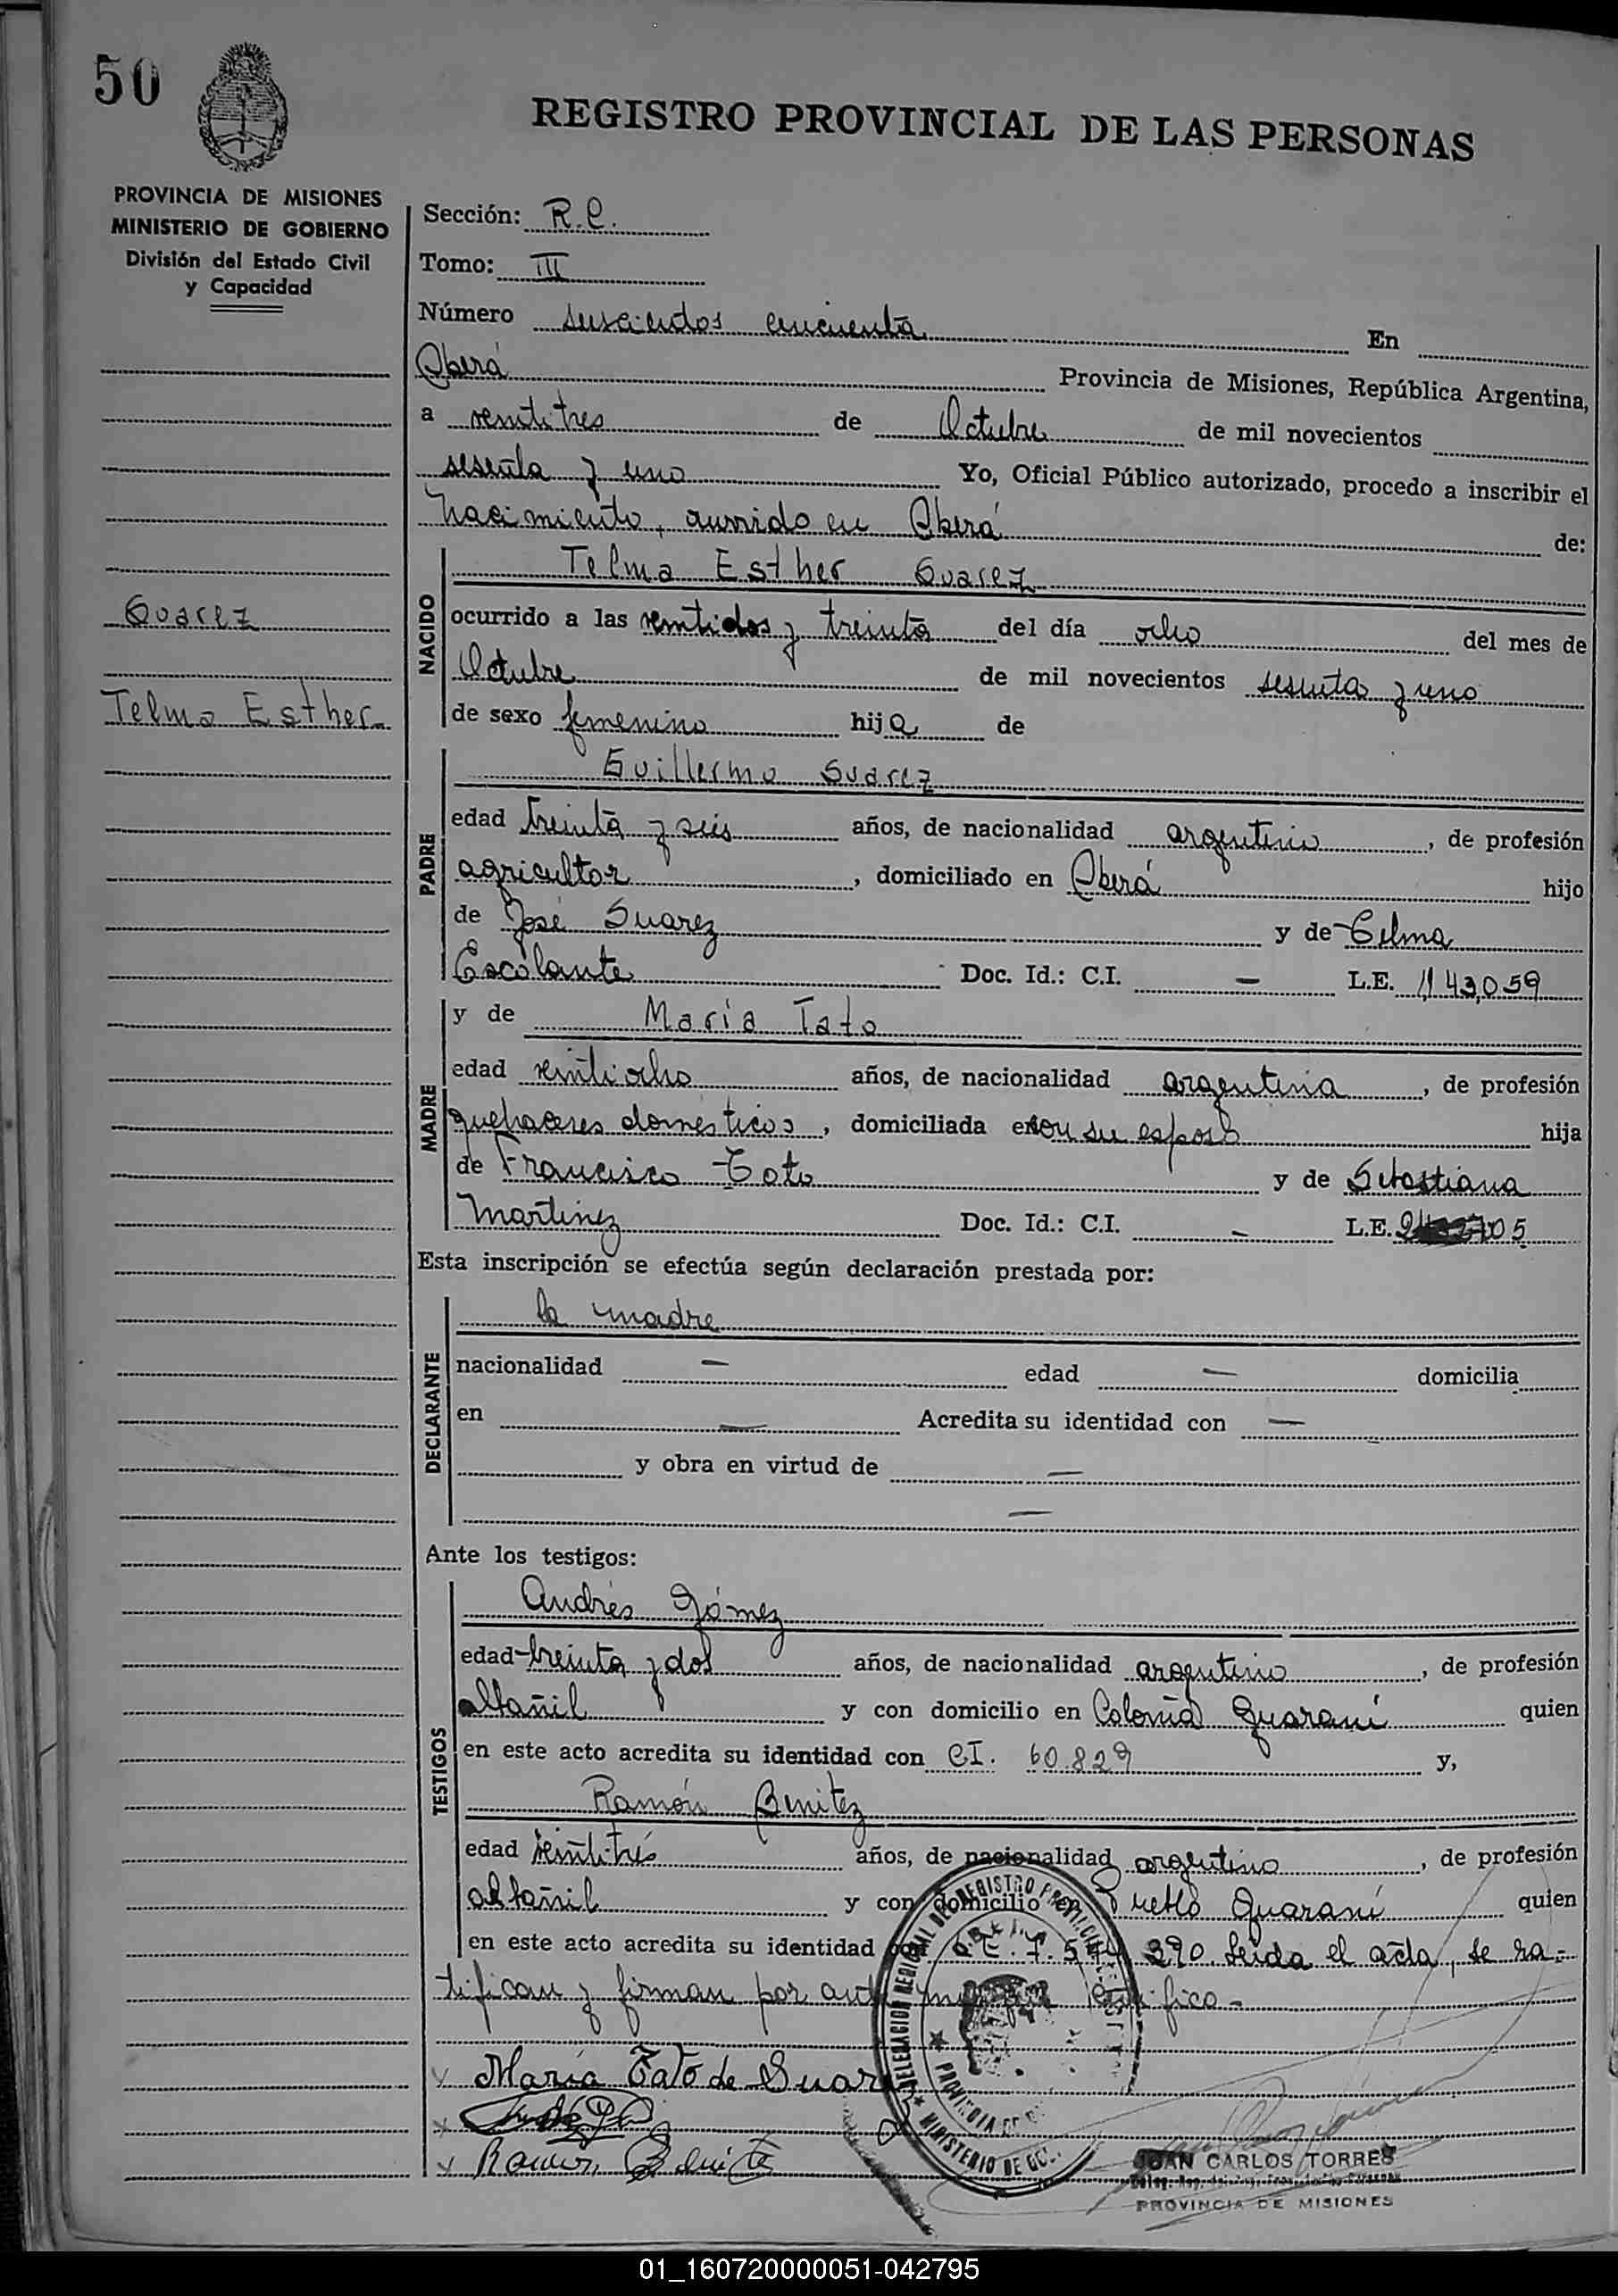 50
REGISTRO PROVINCIAL DE LAS PERSONAS
PROVINCIA DE MISIONES
MINISTERIO DE GOBIERNO
División del Estado Civil
y Capacidad
Sección: R.C.
Tomo: III
Número cincuenta En
Oberá Provincia de Misiones, República Argentina,
a veintitres de Octubre de mil novecientos
sesenta y uno Yo, Oficial Público autorizado, procedo a inscribir el
nacimiento, ocurrido en Oberá de:
Suarez
Telma Esther
NACIDO
Telma Esther Suarez
ocurrido a las veintidos y treinta del día ocho del mes de
Octubre de mil novecientos sesenta y uno
de sexo femenino hija de
PADRE
Guillermo Suarez
edad treinta y seis años, de nacionalidad argentino, de profesión
agricultor, domiciliado en Oberá hijo
de José Suarez y de Celma
Escalante Doc. Id.: C.I. — L.E.
MADRE
y de María Tato
edad veintiocho años, de nacionalidad argentina, de profesión
quehaceres domésticos, domiciliada en con su esposo hija
de Francisco Tato y de Sebastiana
Martinez Doc. Id.: C.I. - L.E.
Esta inscripción se efectúa según declaración prestada por:
DECLARANTE
la madre
nacionalidad — edad — domicilia
en — Acredita su identidad con —
y obra en virtud de —
—
Ante los testigos:
TESTIGOS
Andrés Gómez
edad treinta y dos años, de nacionalidad argentino, de profesión
albañil y con domicilio en Colonia Guaraní quien
en este acto acredita su identidad con CI. 60.829 y,
Ramón Benitez
edad veintitrés años, de nacionalidad argentino, de profesión
albañil y con domicilio Pueblo Guaraní quien
en este acto acredita su identidad 390. Leida el acta, se ra-
tifican y firman por ante
María Tato de Suarez
Ramon Benitez
MINISTERIO DE
JUAN CARLOS TORRES
PROVINCIA DE MISIONES
01_160720000051-042795